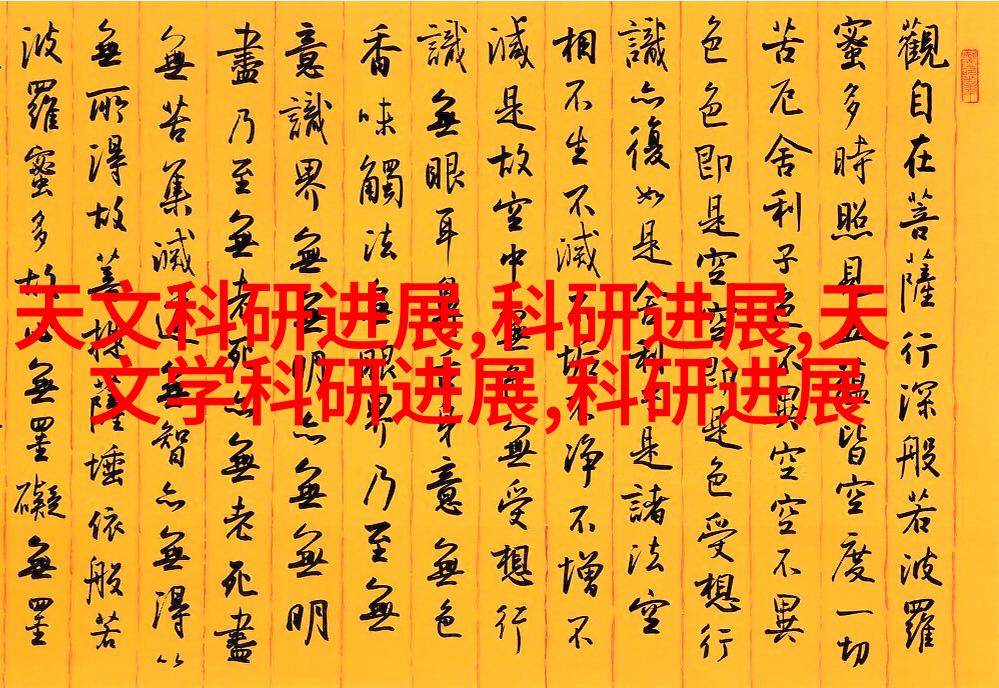 天文科研进展,科研进展,天
文学科研进展,科研进展
觀自在菩薩行深般若波羅
蜜多時照見五蘊皆空度一切
苦厄舍利子色不異空空不異
色色即是空空即是色受想行
識亦復如是舍利子是諸法空
相不生不滅不垢不淨不增不
減是故空中無色無受想行
識無眼耳鼻舌身意無色
香味觸法無眼界乃至無
意識界無無明亦無無明
盡乃至無老死亦無老死盡
無苦集滅道無智亦無得以
無所得故菩提薩埵依般若
波羅蜜多故心無罣礙無罣